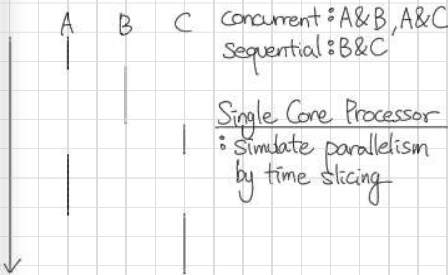 A B C
concurrent : A&B, A&C
sequential : B&C
Single Core Processor
: simulate parallelism
by time slicing